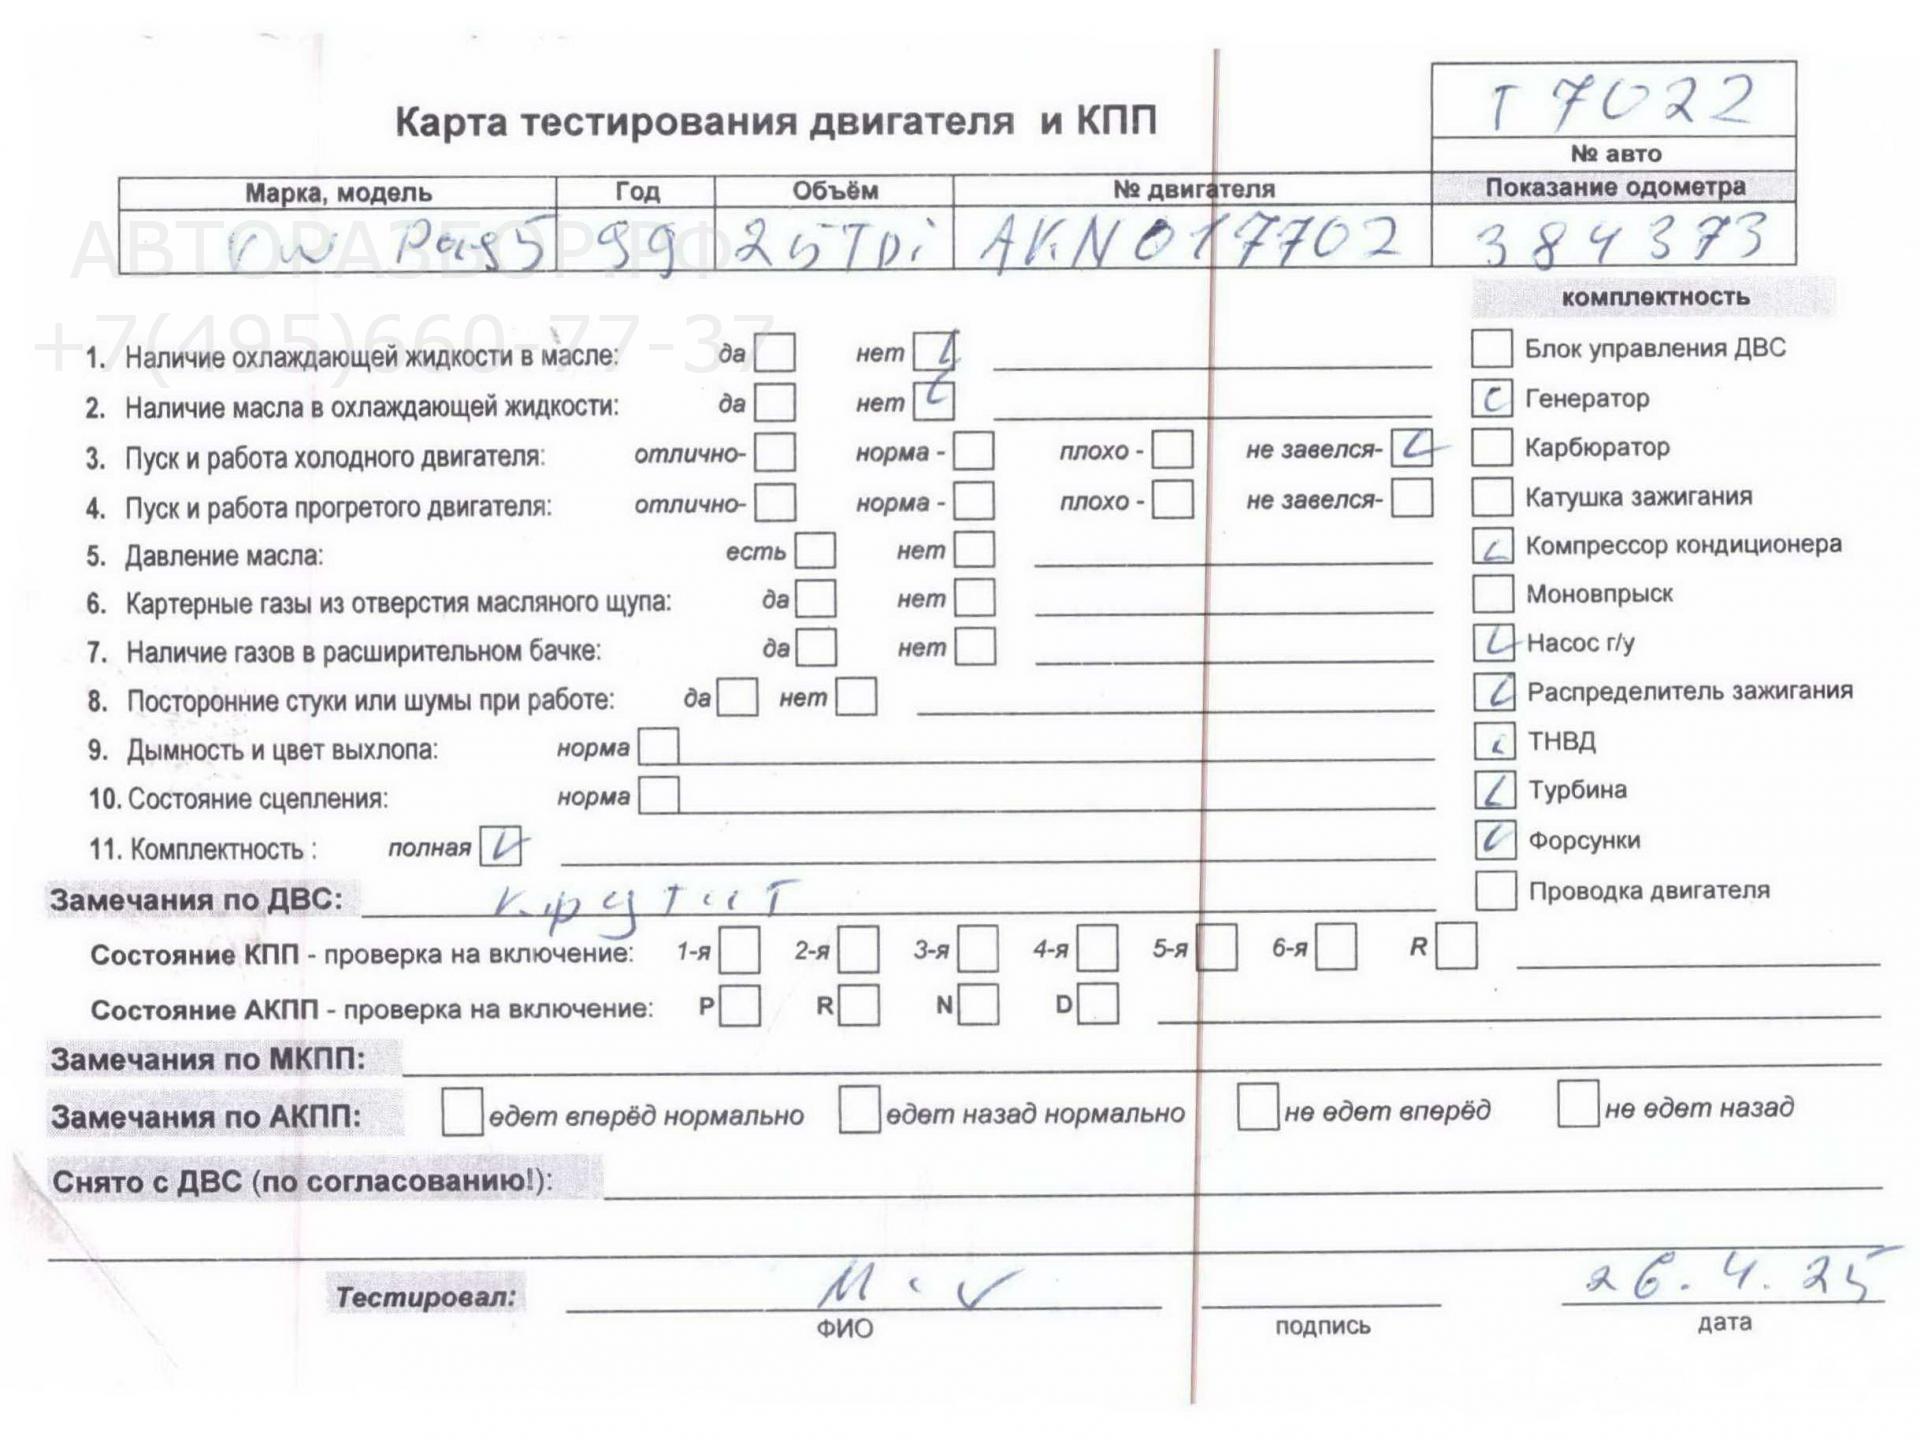 Т 7022
Карта тестирования двигателя и КПП
№ авто
Марка, модель Год Объём № двигателя Показание одометра
VW Pas5 99 25TDi AKN017702 384373
АВТОРАЗБОР.РФ
+7(495)660-77-37
комплектность
1. Наличие охлаждающей жидкости в масле: да нет
Блок управления ДВС
2. Наличие масла в охлаждающей жидкости: да нет
Генератор
3. Пуск и работа холодного двигателя: отлично- норма - плохо - не завелся-
Карбюратор
4. Пуск и работа прогретого двигателя: отлично- норма - плохо - не завелся-
Катушка зажигания
5. Давление масла: есть нет
Компрессор кондиционера
6. Картерные газы из отверстия масляного щупа: да нет
Моновпрыск
7. Наличие газов в расширительном бачке: да нет
Насос г/у
8. Посторонние стуки или шумы при работе: да нет
Распределитель зажигания
9. Дымность и цвет выхлопа: норма
ТНВД
10. Состояние сцепления: норма
Турбина
11. Комплектность : полная
Форсунки
Замечания по ДВС: крутит
Проводка двигателя
Состояние КПП - проверка на включение: 1-я 2-я 3-я 4-я 5-я 6-я R
Состояние АКПП - проверка на включение: P R N D
Замечания по МКПП:
Замечания по АКПП: едет вперёд нормально едет назад нормально не едет вперёд не едет назад
Снято с ДВС (по согласованию!):
Тестировал: 26.4.25
ФИО подпись дата